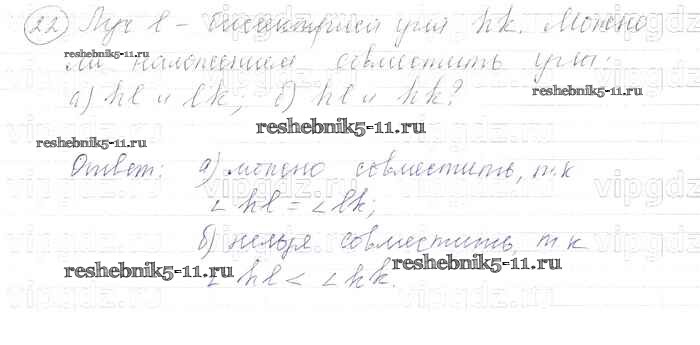 22 Луч l – биссектриса угла hk. Можно
ли наложением совместить углы:
а) hl и lk; б) hl и hk?
Ответ: а) можно совместить, т.к
∠ hl = ∠ lk;
б) нельзя совместить, т к
∠ hl < ∠ hk.
reshebnik5-11.ru
reshebnik5-11.ru
reshebnik5-11.ru
reshebnik5-11.ru
reshebnik5-11.ru
reshebnik5-11.ru
vipgdz.ru